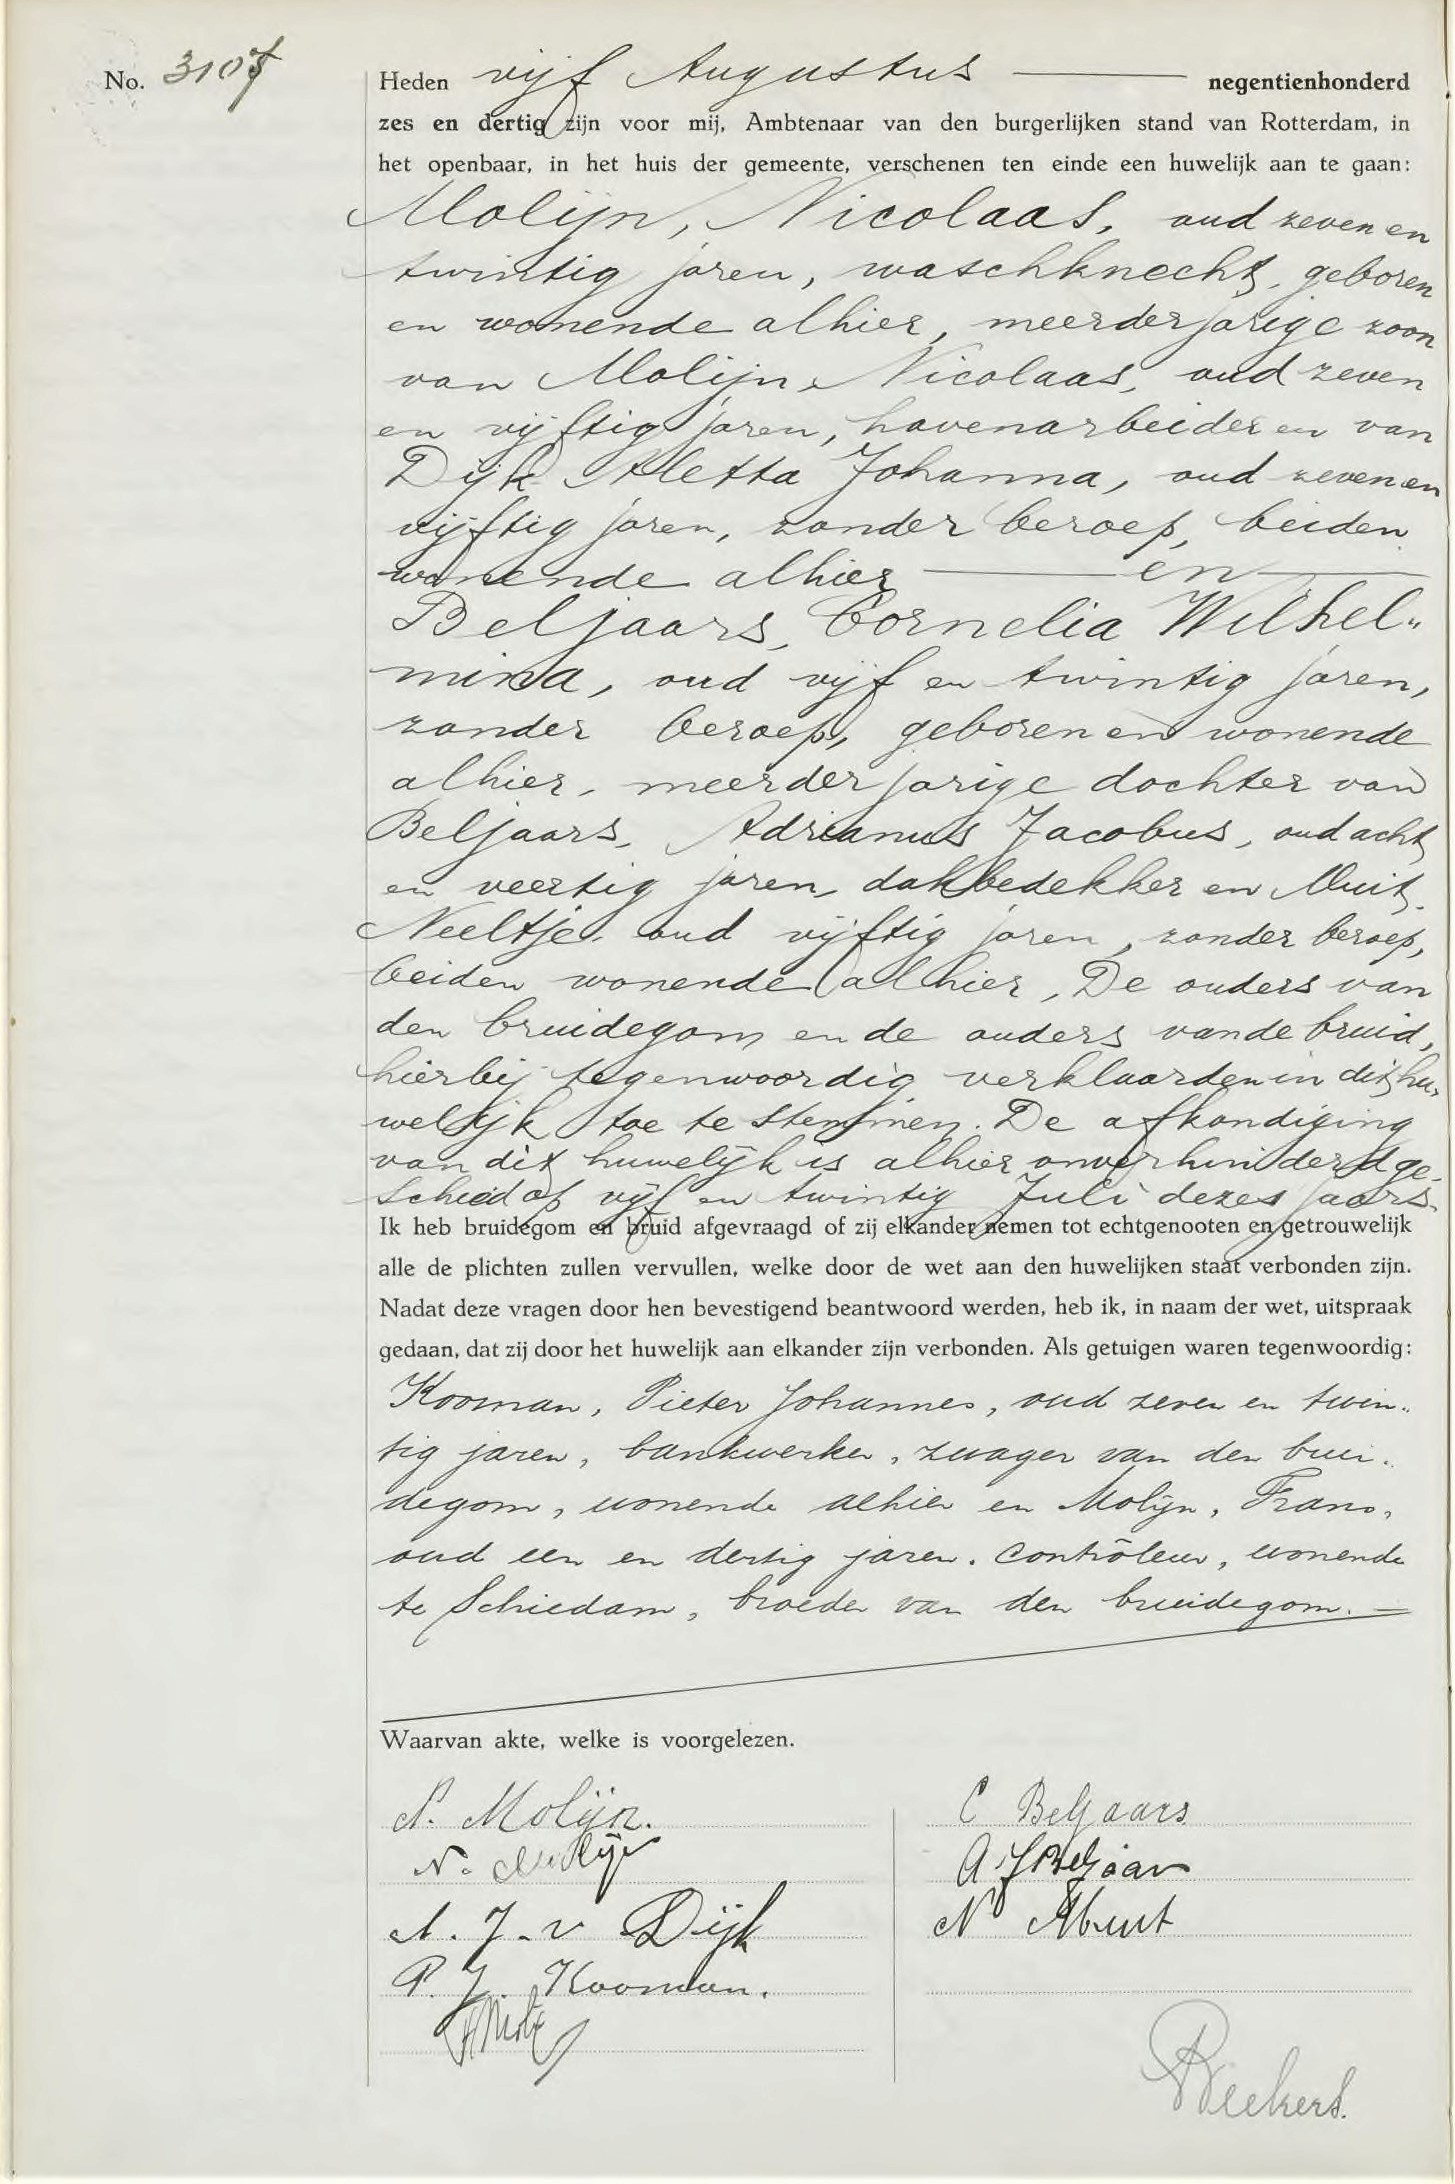 No. 3107
Heden vijf Augustus negentienhonderd
zes en dertig zijn voor mij, Ambtenaar van den burgerlijken stand van Rotterdam, in
het openbaar, in het huis der gemeente, verschenen ten einde een huwelijk aan te gaan:
Molijn, Nicolaas, oud zeven en
twintig jaren, waschknecht, geboren
en wonende alhier, meerderjarige zoon
van Molijn, Nicolaas, oud zeven
en vijftig jaren, havenarbeider en van
Dijk Aletta Johanna, oud zeven en
vijftig jaren, zonder beroep, beiden
wonende alhier en
Beljaars, Cornelia Wilhel„
mina, oud vijf en twintig jaren,
zonder beroep, geboren en wonende
alhier, meerderjarige dochter van
Beljaars, Adrianus Jacobus, oud acht
en veertig jaren, dakbedekker en Muit,
Neeltje, oud vijftig jaren, zonder beroep,
beiden wonende alhier, De ouders van
den bruidegom en de ouders van de bruid,
hierbij tegenwoordig verklaarden in dit hu„
welijk toe te stemmen. De afkondiging
van dit huwelijk is alhier onverhinderd ge-
schied op vijf en twintig Juli dezes jaars.
Ik heb bruidegom en bruid afgevraagd of zij elkander nemen tot echtgenooten en getrouwelijk
alle de plichten zullen vervullen, welke door de wet aan den huwelijken staat verbonden zijn.
Nadat deze vragen door hen bevestigend beantwoord werden, heb ik, in naam der wet, uitspraak
gedaan, dat zij door het huwelijk aan elkander zijn verbonden. Als getuigen waren tegenwoordig:
Kooman, Pieter Johannes, oud zeven en twin„
tig jaren, bankwerker, zwager van den brui„
degom, wonende alhier en Molijn, Frans,
oud een en dertig jaren, contrôleur, wonende
te Schiedam, broeder van den bruidegom.
Waarvan akte, welke is voorgelezen.
N. Molijn.
C Beljaars
N. Molijn
A J Beljaars
A. J. v Dijk
N Muit
P. J. Kooman.